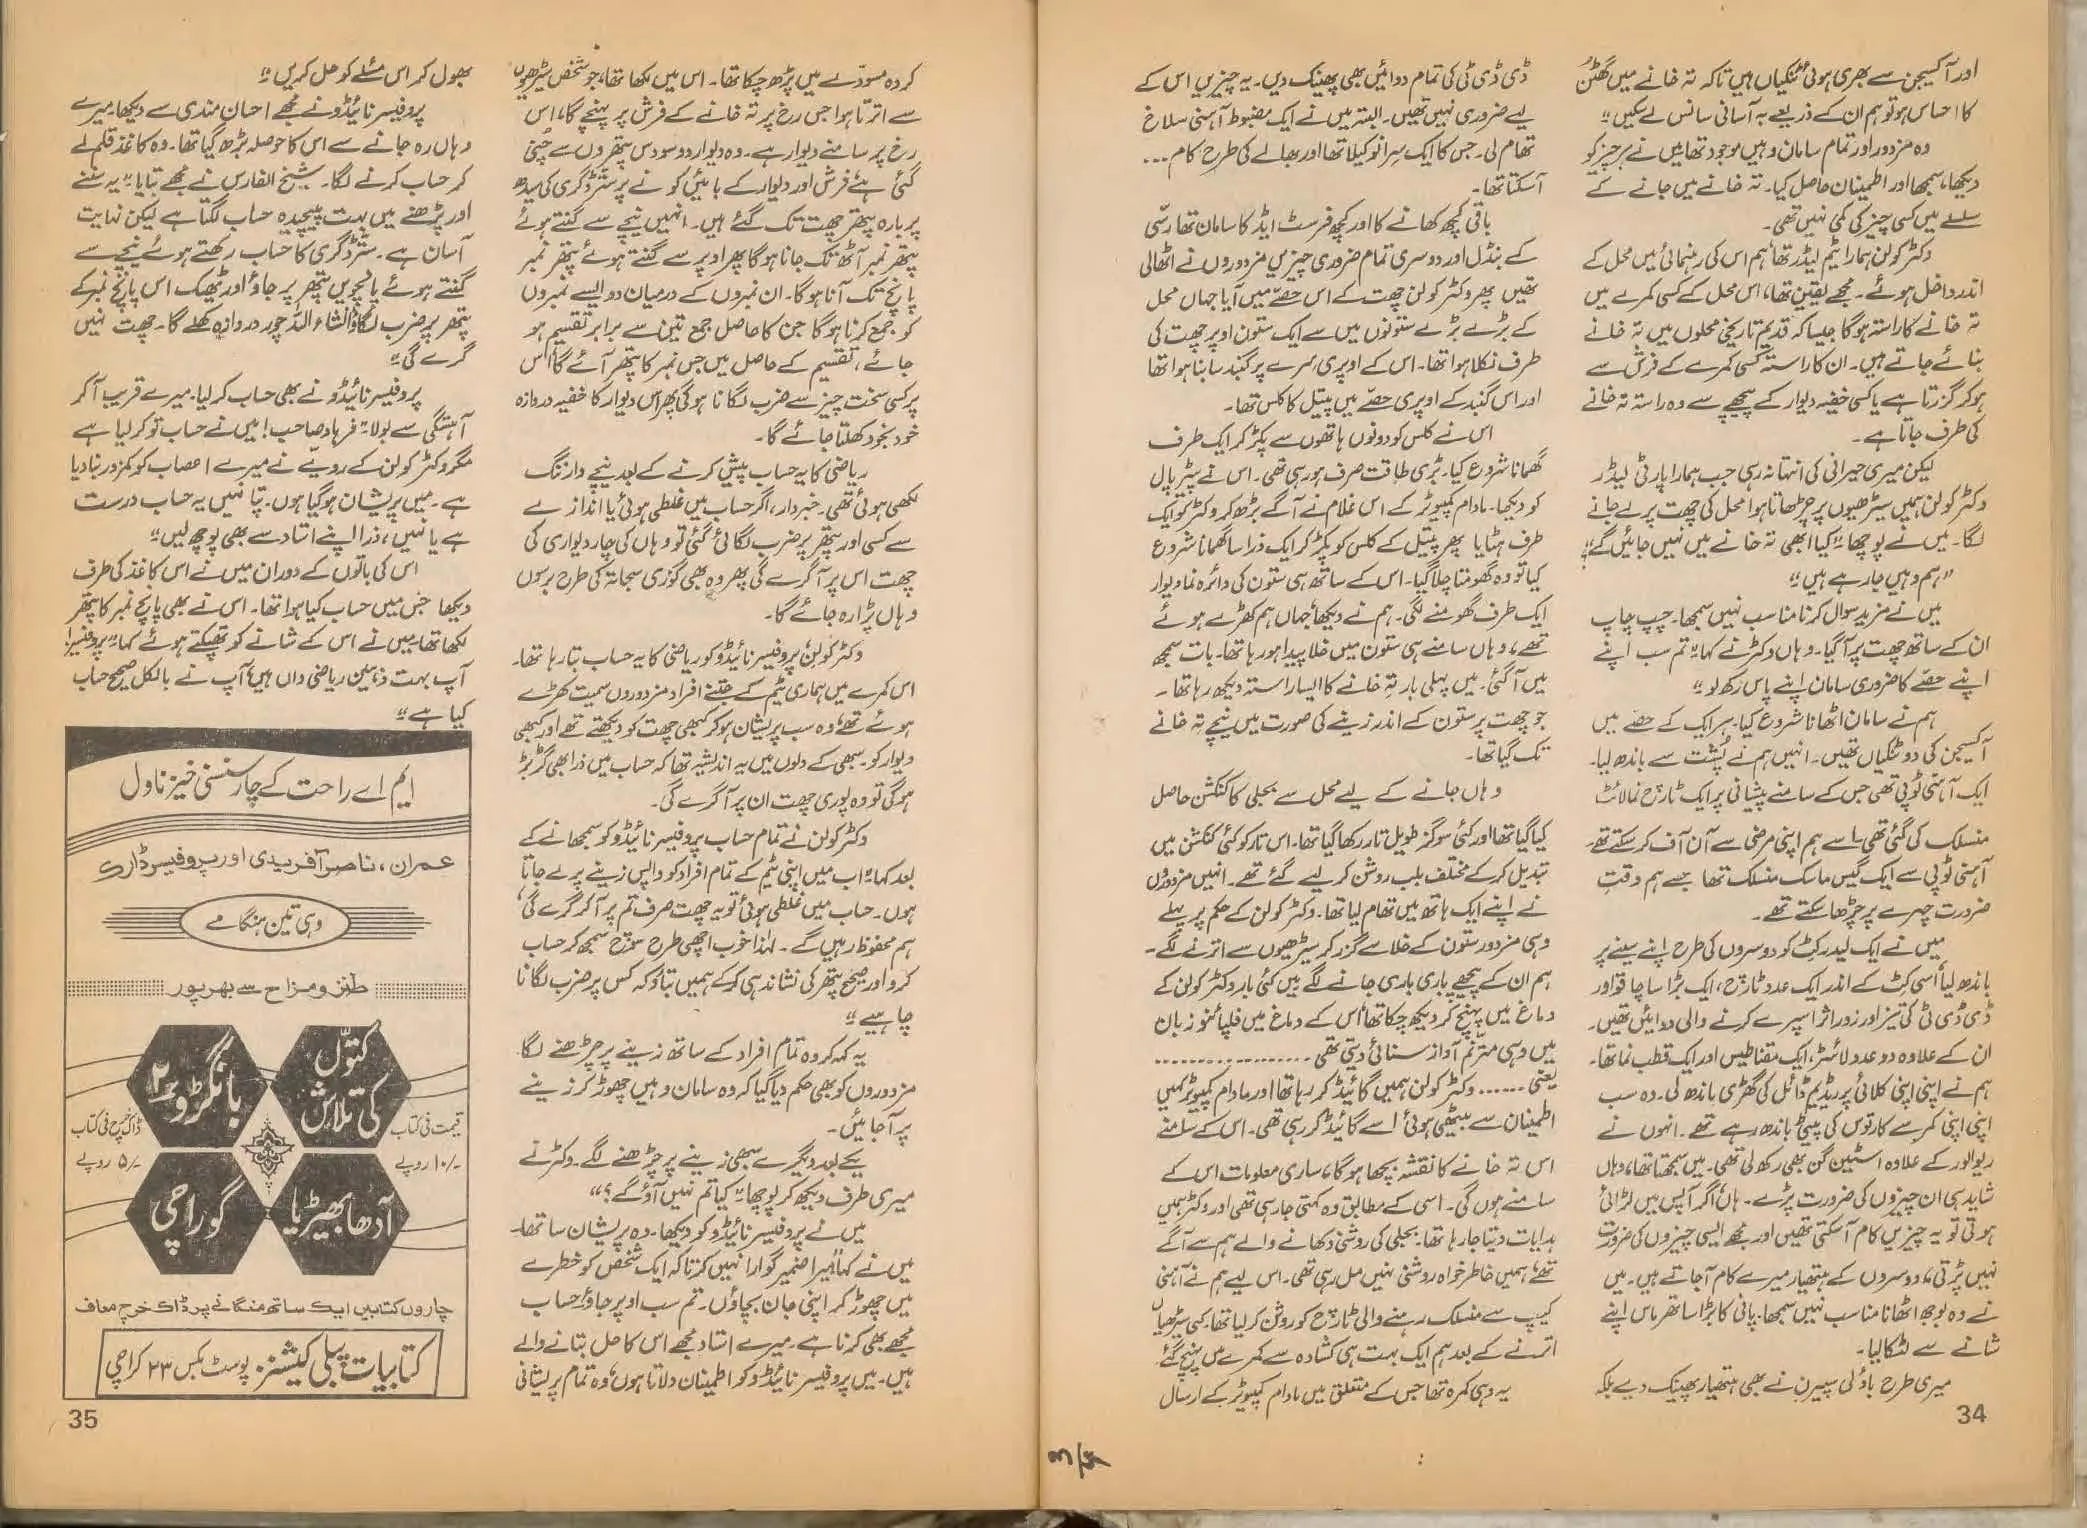 اور آکسیجن سے بھری ہوئی ٹنکیاں ہیں تاکہ تہ خانے میں گھٹن
کا احساس ہو تو ہم ان کے ذریعے بہ آسانی سانس لے سکیں"
وہ مزدور اور تمام سامان وہیں موجود تھا میں نے ہر چیز کو
دیکھا، سمجھا اور اطمینان حاصل کیا۔ تہ خانے میں جانے کے
سلسلے میں کسی چیز کی کمی نہیں تھی۔
وکٹر کولن ہمارا ٹیم لیڈر تھا ہم اس کی رہنمائی میں محل کے
اندر داخل ہوئے۔ مجھے یقین تھا، اس محل کے کسی کمرے میں
تہ خانے کا راستہ ہوگا جیسا کہ قدیم تاریخی محلوں میں تہ خانے
بنائے جاتے ہیں۔ ان کا راستہ کسی کمرے کے فرش سے
ہو کر گزرتا ہے یا کسی خفیہ دیوار کے پیچھے سے وہ راستہ تہ خانے
کی طرف جاتا ہے۔
لیکن میری حیرانی کی انتہا نہ رہی جب ہمارا پارٹی لیڈر
وکٹر کولن ہمیں سیڑھیوں پر چڑھاتا ہوا محل کی چھت پر لے جانے
لگا۔ میں نے پوچھا "کیا ابھی تہ خانے میں نہیں جائیں گے؟"
"ہم وہیں جا رہے ہیں"
میں نے مزید سوال کرنا مناسب نہیں سمجھا۔ چپ چاپ
ان کے ساتھ چھت پر آ گیا۔ وہاں وکٹر نے کہا "تم سب اپنے
اپنے حصے کا ضروری سامان اپنے پاس رکھ لو"
ہم نے سامان اٹھانا شروع کیا۔ ہر ایک کے حصے میں
آکسیجن کی دو ٹنکیاں تھیں۔ انہیں ہم نے پشت سے باندھ لیا۔
ایک آہنی ٹوپی تھی جس کے سامنے پیشانی پر ایک ٹارچ نما لائٹ
منسلک کی گئی تھی۔ اسے ہم اپنی مرضی سے آن آف کر سکتے تھے۔
آہنی ٹوپی سے ایک گیس ماسک منسلک تھا جسے ہم وقت
ضرورت چہرے پر چڑھا سکتے تھے۔
میں نے ایک لیدر کٹ کو دوسروں کی طرح اپنے سینے پر
باندھ لیا اسی کٹ کے اندر ایک عدد ٹارچ، ایک بڑا سا چاقو اور
ڈی ڈی ٹی کی تیز اور زور اثر اسپرے کرنے والی دوائیں تھیں۔
ان کے علاوہ دو عدد لائٹر، ایک مقناطیس اور ایک قطب نما تھا۔
ہم نے اپنی اپنی کلائی پر ریڈیم ڈائل کی گھڑی باندھ لی۔ وہ سب
اپنی اپنی کمر سے کارتوس کی پیٹی باندھ رہے تھے۔ انہوں نے
ریوالور کے علاوہ اسٹین گن بھی رکھ لی تھی۔ میں سمجھتا تھا، وہاں
شاید ہی ان چیزوں کی ضرورت پڑے۔ ہاں اگر آپس میں لڑائی
ہوتی تو یہ چیزیں کام آ سکتی تھیں اور مجھے ایسی چیزوں کی ضرورت
نہیں پڑتی، دوسروں کے ہتھیار میرے کام آ جاتے ہیں۔ میں
نے وہ بوجھ اٹھانا مناسب نہیں سمجھا۔ پانی کا بڑا سا تھرماس اپنے
شانے سے لٹکا لیا۔
میری طرح باؤلی سپیرن نے بھی ہتھیار پھینک دیے بلکہ
34
ڈی ڈی ٹی کی تمام دوائیں بھی پھینک دیں۔ یہ چیزیں اس کے
لیے ضروری نہیں تھیں۔ البتہ میں نے ایک مضبوط آہنی سلاخ
تھام لی۔ جس کا ایک سرا نوکیلا تھا اور بھالے کی طرح کام ...
آ سکتا تھا۔
باقی کچھ کھانے کا اور کچھ فرسٹ ایڈ کا سامان تھا رسّی
کے بنڈل اور دوسری تمام ضروری چیزیں مزدوروں نے اٹھا لی
تھیں پھر وکٹر کولن چھت کے اس حصے میں آیا جہاں محل
کے بڑے بڑے ستونوں میں سے ایک ستون اوپر چھت کی
طرف نکلا ہوا تھا۔ اس کے اوپری سرے پر گنبد سا بنا ہوا تھا
اور اس گنبد کے اوپری حصے میں پیتل کا کلس تھا۔
اس نے کلس کو دونوں ہاتھوں سے پکڑ کر ایک طرف
گھمانا شروع کیا۔ بڑی طاقت صرف ہو رہی تھی۔ اس نے پیٹر پال
کو دیکھا۔ مادام کمپیوٹر کے اس غلام نے آگے بڑھ کر وکٹر کو ایک
طرف ہٹایا پھر پیتل کے کلس کو پکڑ کر ایک ذرا سا گھمانا شروع
کیا تو وہ گھومتا چلا گیا۔ اس کے ساتھ ہی ستون کی دائرہ نما دیوار
ایک طرف گھومنے لگی۔ ہم نے دیکھا جہاں ہم کھڑے ہوئے
تھے، وہاں سامنے ہی ستون میں خلا پیدا ہو رہا تھا۔ بات سمجھ
میں آ گئی۔ میں پہلی بار تہ خانے کا ایسا راستہ دیکھ رہا تھا۔
جو چھت پر ستون کے اندر زینے کی صورت میں نیچے تہ خانے
تک گیا تھا۔
وہاں جانے کے لیے محل سے بجلی کا کنکشن حاصل
کیا گیا تھا اور کئی سو گز طویل تار رکھا گیا تھا۔ اس تار کو کئی کنکشن میں
تبدیل کر کے مختلف بلب روشن کر لیے گئے تھے۔ انہیں مزدوروں
نے اپنے ایک ہاتھ میں تھام لیا تھا۔ وکٹر کولن کے حکم پر پہلے
وہی مزدور ستون کے خلا سے گزر کر سیڑھیوں سے اترنے لگے۔
ہم ان کے پیچھے باری باری جانے لگے میں کئی بار وکٹر کولن کے
دماغ میں پہنچ کر دیکھ چکا تھا اس کے دماغ میں فلپائنو زبان
میں وہی مترنم آواز سنائی دیتی تھی ..................
یعنی ...... وکٹر کولن ہمیں گائیڈ کر رہا تھا اور مادام کمپیوٹر کہیں
اطمینان سے بیٹھی ہوئی اسے گائیڈ کر رہی تھی۔ اس کے سامنے
اس تہ خانے کا نقشہ بچھا ہوگا، ساری معلومات اس کے
سامنے ہوں گی۔ اسی کے مطابق وہ کہتی جا رہی تھی اور وکٹر ہمیں
ہدایات دیتا جا رہا تھا۔ بجلی کی روشنی دکھانے والے ہم سے آگے
تھے، ہمیں خاطر خواہ روشنی نہیں مل رہی تھی۔ اس لیے ہم نے آہنی
کیپ سے منسلک رہنے والی ٹارچ کو روشن کر لیا تھا۔ کئی سیڑھیاں
اترنے کے بعد ہم ایک بہت ہی کشادہ سے کمرے میں پہنچ گئے
یہ وہی کمرہ تھا جس کے متعلق میں مادام کمپیوٹر کے ارسال
کردہ مسودے میں پڑھ چکا تھا۔ اس میں لکھا تھا، جو شخص سیڑھیوں
سے اترتا ہوا جس رخ پر تہ خانے کے فرش پر پہنچے گا، اس
رخ پر سامنے دیوار ہے۔ وہ دیوار دو سو دس پتھروں سے چُنی
گئی ہے فرش اور دیوار کے بائیں کونے پر ستّر ڈگری کی سیدھ
پر بارہ پتھر چھت تک گئے ہیں۔ انہیں نیچے سے گنتے ہوئے
پتھر نمبر آٹھ تک جانا ہوگا پھر اوپر سے گنتے ہوئے پتھر نمبر
پانچ تک آنا ہوگا۔ ان نمبروں کے درمیان دو ایسے نمبروں
کو جمع کرنا ہوگا جن کا حاصل جمع تین سے برابر تقسیم ہو
جائے، تقسیم کے حاصل میں جس نمبر کا پتھر آئے گا اس
پر کسی سخت چیز سے ضرب لگانا ہوگی پھر اس دیوار کا خفیہ دروازہ
خود بخود کھلتا جائے گا۔
ریاضی کا یہ حساب پیش کرنے کے بعد نیچے وارننگ
لکھی ہوئی تھی۔ خبردار، اگر حساب میں غلطی ہوئی یا اندازے
سے کسی اور پتھر پر ضرب لگائی گئی تو وہاں کی چار دیواری کی
چھت اس پر آ گرے گی پھر وہ بھی گوری سجانتہ کی طرح برسوں
وہاں پڑا رہ جائے گا۔
وکٹر کولن پروفیسر نائیڈو کو ریاضی کا یہ حساب بتا رہا تھا۔
اس کمرے میں ہماری ٹیم کے جتنے افراد مزدوروں سمیت کھڑے
ہوئے تھے، وہ سب پریشان ہو کر کبھی چھت کو دیکھتے تھے اور کبھی
دیوار کو۔ سبھی کے دلوں میں یہ اندیشہ تھا کہ حساب میں ذرا بھی گڑبڑ
ہوگی تو وہ پوری چھت ان پر آ گرے گی۔
وکٹر کولن نے تمام حساب پروفیسر نائیڈو کو سمجھانے کے
بعد کہا "اب میں اپنی ٹیم کے تمام افراد کو واپس زینے پر لے جاتا
ہوں۔ حساب میں غلطی ہوئی تو یہ چھت صرف تم پر آ کر گرے گی،
ہم محفوظ رہیں گے۔ لہٰذا خوب اچھی طرح سوچ سمجھ کر حساب
کرو اور صحیح پتھر کی نشاندہی کر کے ہمیں بتاؤ کہ کس پر ضرب لگانا
چاہیے"
یہ کہہ کر وہ تمام افراد کے ساتھ زینے پر چڑھنے لگا۔
مزدوروں کو بھی حکم دیا گیا کہ وہ سامان وہیں چھوڑ کر زینے
پر آ جائیں۔
یکے بعد دیگرے سبھی زینے پر چڑھنے لگے۔ وکٹر نے
میری طرف دیکھ کر پوچھا "کیا تم نہیں آؤ گے؟"
میں نے پروفیسر نائیڈو کو دیکھا۔ وہ پریشان سا تھا۔
میں نے کہا "میرا ضمیر گوارا نہیں کرتا کہ ایک شخص کو خطرے
میں چھوڑ کر اپنی جان بچاؤں۔ تم سب اوپر جاؤ۔ حساب
مجھے بھی کرنا ہے۔ میرے استاد مجھے اس کا حل بتانے والے
ہیں۔ میں پروفیسر نائیڈو کو اطمینان دلاتا ہوں، وہ تمام پریشانی
بھول کر اس مسئلے کو حل کریں"
پروفیسر نائیڈو نے مجھے احسان مندی سے دیکھا۔ میرے
وہاں رہ جانے سے اس کا حوصلہ بڑھ گیا تھا۔ وہ کاغذ قلم لے
کر حساب کرنے لگا۔ شیخ الفارس نے مجھے بتایا "یہ سننے
اور پڑھنے میں بہت پیچیدہ حساب لگتا ہے لیکن نہایت
آسان ہے۔ ستّر ڈگری کا حساب رکھتے ہوئے نیچے سے
گنتے ہوئے پانچویں پتھر پر جاؤ اور ٹھیک اس پانچ نمبر کے
پتھر پر ضرب لگاؤ انشاء اللہ چور دروازہ کھلے گا۔ چھت نہیں
گرے گی"
پروفیسر نائیڈو نے بھی حساب کر لیا۔ میرے قریب آ کر
آہستگی سے بولا "فرہاد صاحب! میں نے حساب تو کر لیا ہے
مگر وکٹر کولن کے رویّے نے میرے اعصاب کو کمزور بنا دیا
ہے۔ میں پریشان ہو گیا ہوں۔ پتا نہیں یہ حساب درست
ہے یا نہیں، ذرا اپنے استاد سے بھی پوچھ لیں"
اس کی باتوں کے دوران میں نے اس کاغذ کی طرف
دیکھا جس میں حساب کیا ہوا تھا۔ اس نے بھی پانچ نمبر کا پتھر
لکھا تھا میں نے اس کے شانے کو تھپکتے ہوئے کہا "پروفیسر!
آپ بہت ذہین ریاضی داں ہیں آپ نے بالکل صحیح حساب
کیا ہے"
ایم اے راحت کے چار سنسنی خیز ناول
عمران، ناصر آفریدی اور پروفیسر ڈارک
وہی تین ہنگامے
طنز و مزاح سے بھرپور
کتّوں کی تلاش
بانگڑو ۲
قیمت فی کتاب
۱۰/- روپے
ڈاک خرچ فی کتاب
۵/- روپے
آدھا بھیڑیا
گوراچی
چاروں کتابیں ایک ساتھ منگانے پر ڈاک خرچ معاف
کتابیات پبلی کیشنز، پوسٹ بکس ۲۳ کراچی
35